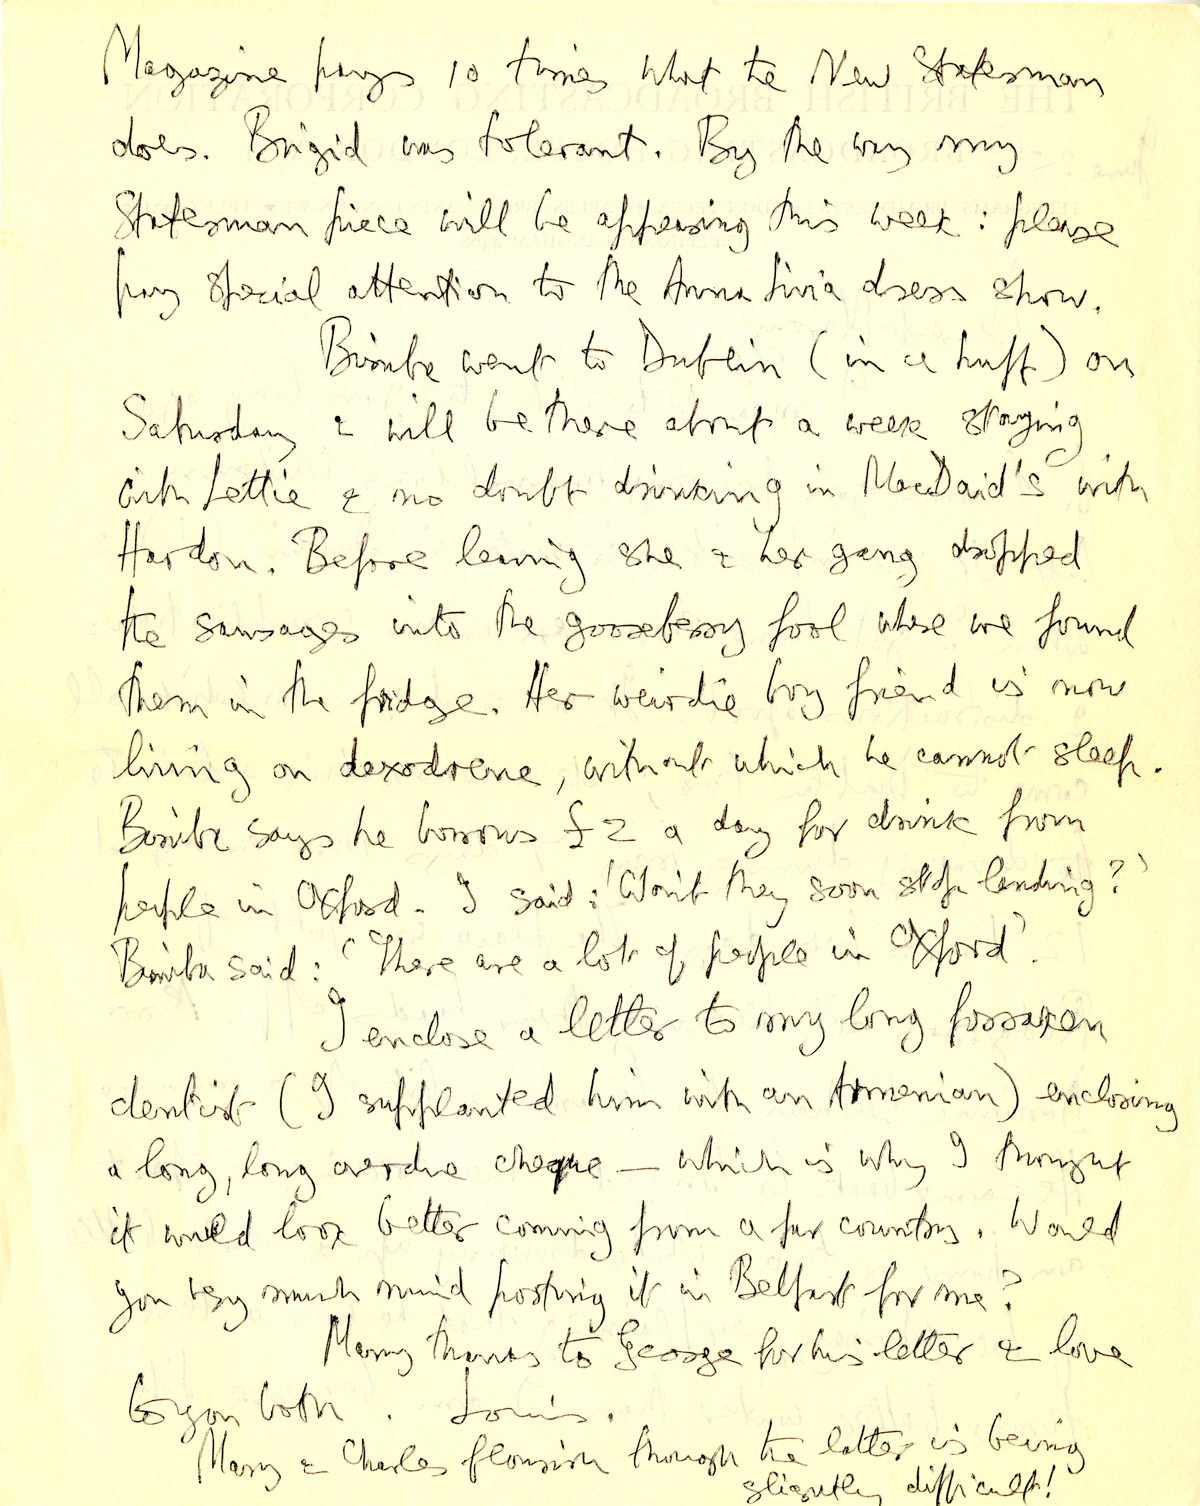 Magazine pays 10 times what the New Statesman
does. Brigid was tolerant. By the way my
Statesman piece will be appearing this week: please
pay special attention to the Anna Livia dress show.
Bimba went to Dublin (in a huff) on
Saturday & will be there about a week staying
with Lettie & no doubt drinking in MacDaid's with
Hardon. Before leaving she & her gang dropped
the sausages into the gooseberry fool where we found
them in the fridge. Her weirdie boy friend is now
living on dexodrene, without which he cannot sleep.
Bimba says he borrows £2 a day for drink from
people in Oxford. I said: 'Won't they soon stop lending?'
Bimba said: 'There are a lot of people in Oxford'.
I enclose a letter to my long forsaken
dentist (I supplanted him with an Armenian) enclosing
a long, long overdue cheque — which is why I thought
it would look better coming from a far country. Would
you very much mind posting it in Belfast for me?
Many thanks to George for his letter & love
to you both. Louis.
Mary & Charles flourish though the latter is being
slightly difficult!